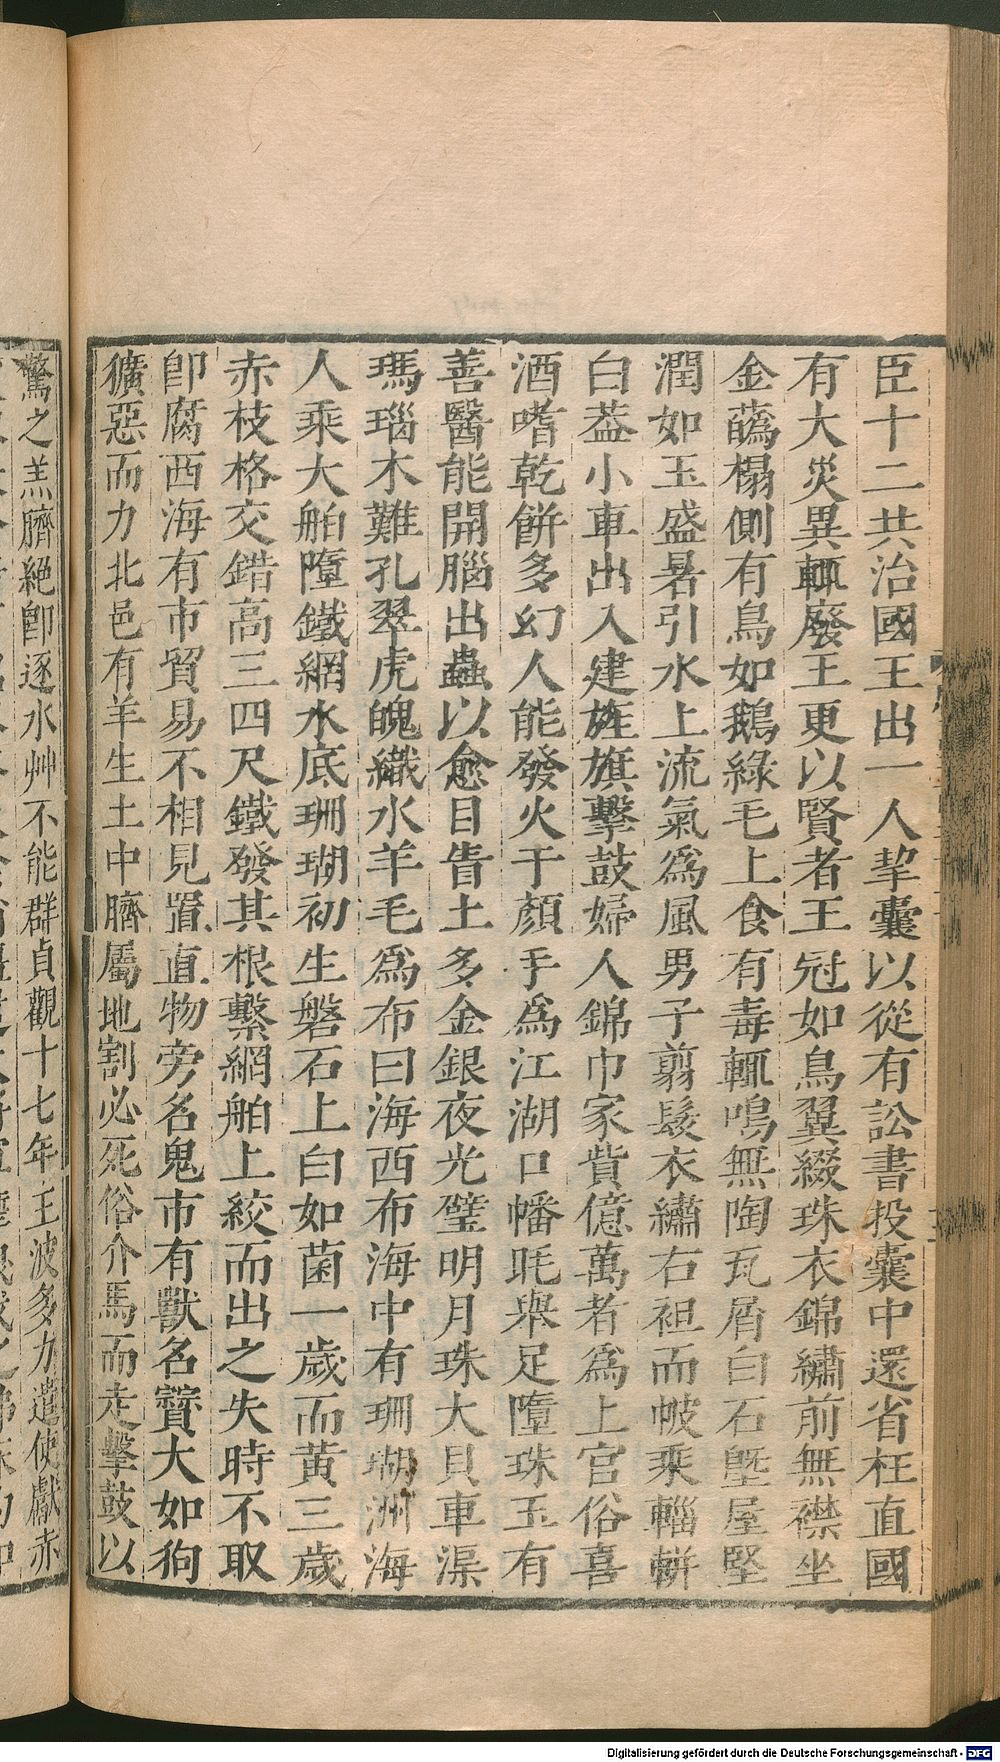 臣十二共治國王出一人挈囊以從有訟書投囊中還省枉直國
有大災異輒廢王更以賢者王冠如鳥翼綴珠衣錦繡前無襟坐
金蘤榻側有鳥如鵝綠毛上食有毒輒鳴無陶瓦屑白石塈屋堅
潤如玉盛暑引水上流氣爲風男子翦髮衣繡右袒而帔乘輜軿
白葢小車出入建旌旗擊鼓婦人錦巾家貲億萬者爲上官俗喜
酒嗜乾餠多幻人能發火于顏手爲江湖口幡眊舉足墮珠玉有
善醫能開腦出蟲以愈目眚土多金銀夜光璧明月珠大貝車渠
瑪瑙木難孔翠虎魄織水羊毛爲布曰海西布海中有珊瑚洲海
人乘大舶墮鐵網水底珊瑚初生磐石上白如菌一歲而黃三歲
赤枝格交錯高三四尺鐵發其根繫網舶上絞而出之失時不取
卽腐西海有市貿易不相見置直物旁名鬼市有獸名賨大如狗
獷惡而力北邑有羊生土中臍屬地割必死俗介馬而走擊鼓以
驚之羔臍絕卽逐水艸不能群貞觀十七年王波多力遣使獻赤
Digitalisierung gefördert durch die Deutsche Forschungsgemeinschaft - DFG